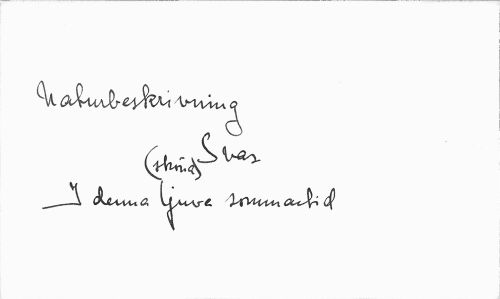 Naturbeskrivning
(sköna) Svas
I denna ljuva sommartid